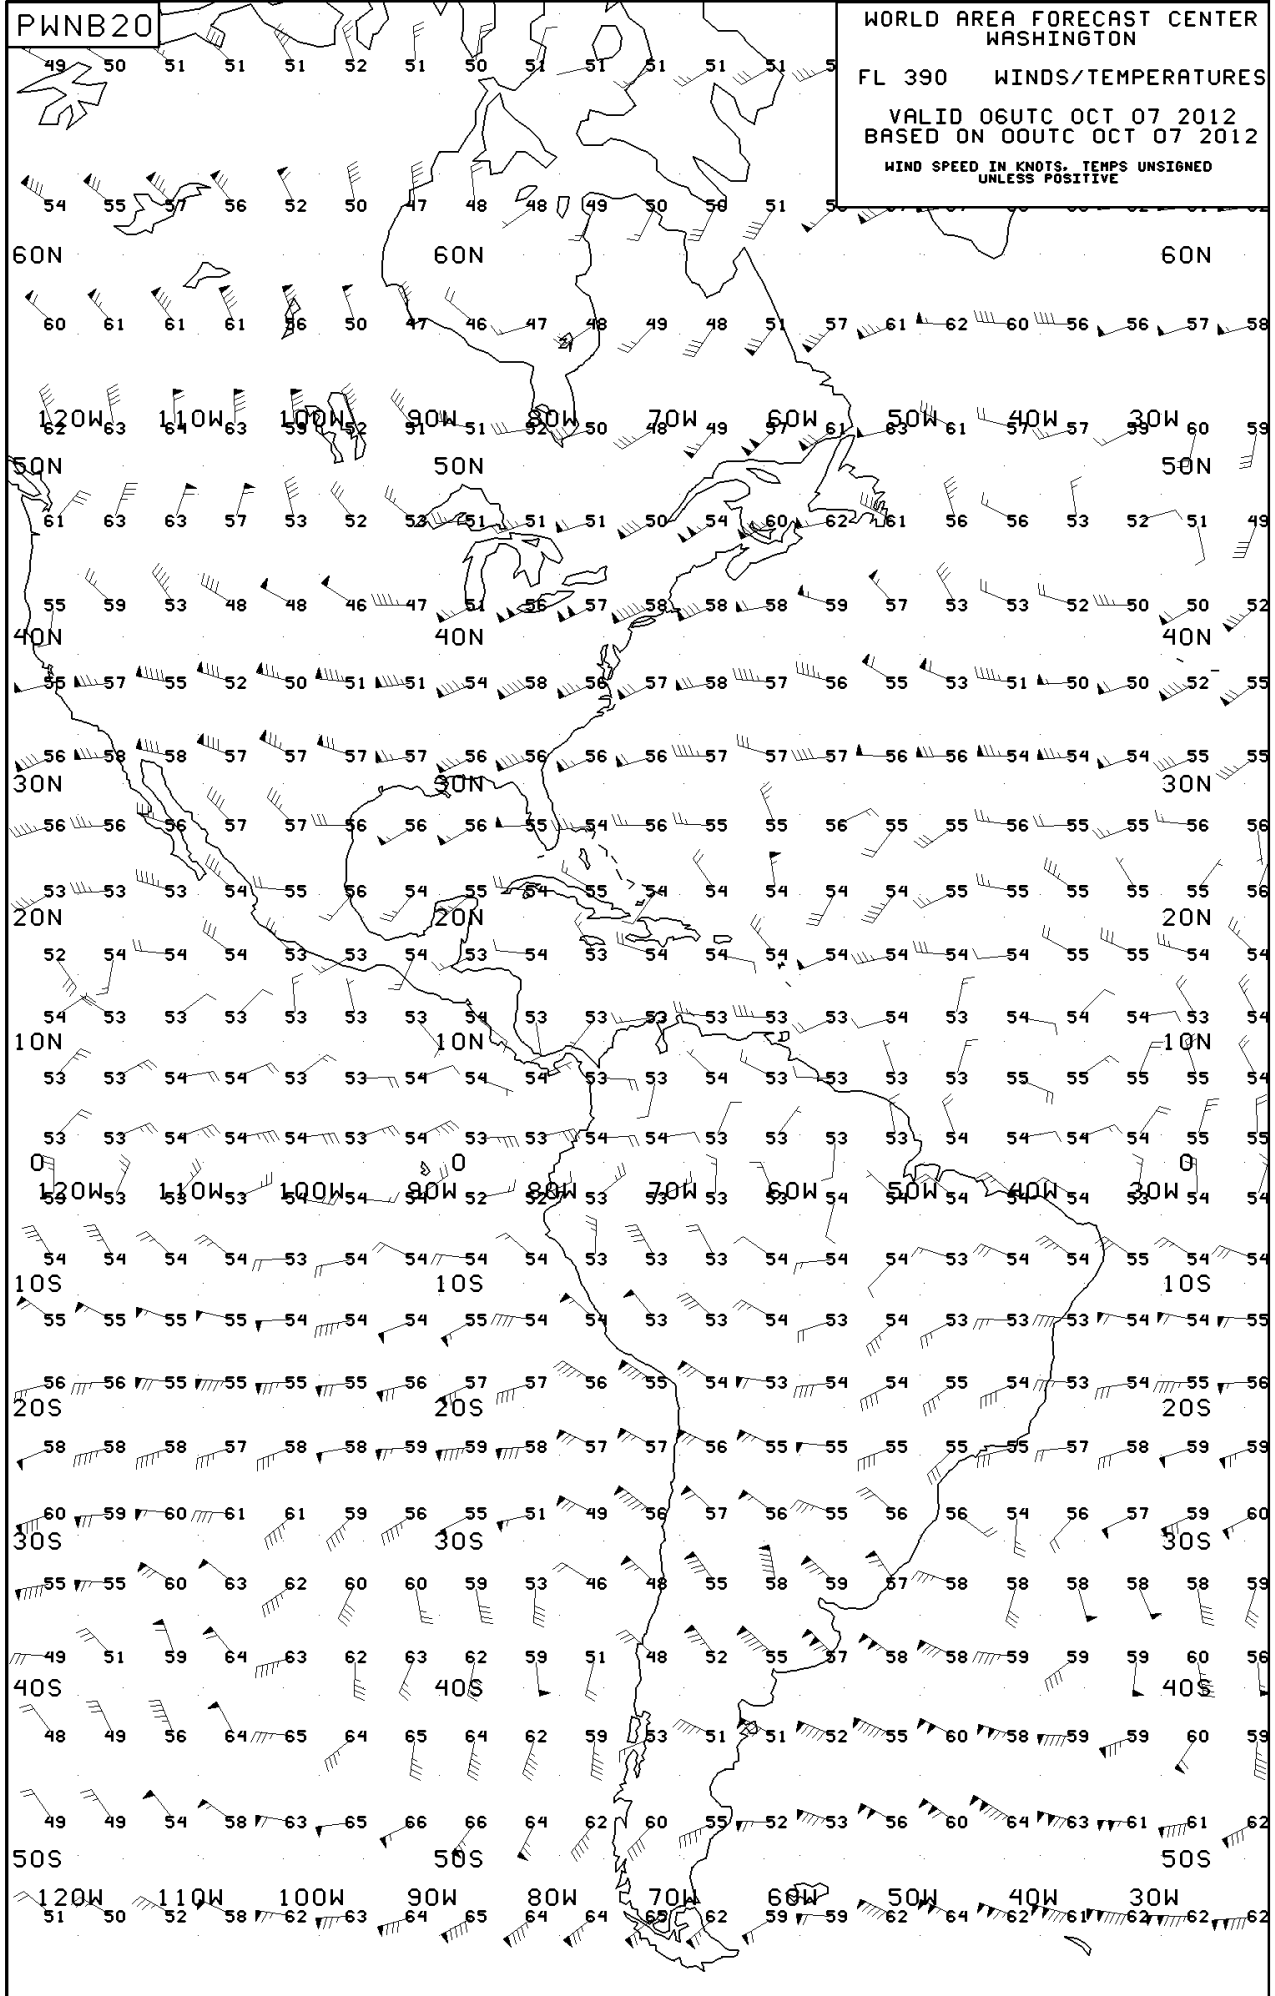 PWNB20
WORLD AREA FORECAST CENTER
WASHINGTON
FL 390 WINDS/TEMPERATURES
VALID 06UTC OCT 07 2012
BASED ON 00UTC OCT 07 2012
WIND SPEED IN KNOTS, TEMPS UNSIGNED
UNLESS POSITIVE
49 50 51 51 51 52 51 50 51 51 51 51 51
54 55 57 56 52 50 47 48 48 49 50 50 51
60N 60N 60N
60 61 61 61 56 50 47 46 47 48 49 48 51 57 61 62 60 56 56 57 58
120W 110W 100W 90W 80W 70W 60W 50W 40W 30W
62 63 64 63 59 52 51 51 52 50 48 49 57 61 63 61 57 57 59 60 59
50N 50N 50N
61 63 63 57 53 52 53 51 51 51 50 54 60 62 61 56 56 53 52 51 49
55 59 53 48 48 46 47 51 56 57 58 58 58 59 57 53 53 52 50 50 52
40N 40N 40N
55 57 55 52 50 51 51 54 58 56 57 58 57 56 55 53 51 50 50 52 55
56 58 58 57 57 57 57 56 56 56 56 57 57 57 56 56 54 54 54 55 55
30N 30N 30N
56 56 56 57 57 56 56 56 55 54 56 55 55 56 55 55 56 55 55 56 56
53 53 53 54 55 56 54 55 54 55 54 54 54 54 54 55 55 55 55 55 56
20N 20N 20N
52 54 54 54 53 53 54 53 54 53 54 54 54 54 54 54 54 55 55 54 54
54 53 53 53 53 53 53 54 53 53 53 53 53 53 54 53 54 54 54 53 54
10N 10N 10N
53 53 54 54 53 53 54 54 54 53 53 54 53 53 53 53 55 55 55 55 54
53 53 54 54 54 53 54 53 53 54 54 53 53 53 53 54 54 54 54 55 55
0 0 0
120W 110W 100W 90W 80W 70W 60W 50W 40W 30W
53 53 53 53 54 54 54 52 52 53 53 53 53 54 54 54 54 54 53 54 54
54 54 54 54 53 54 54 54 54 53 53 53 54 54 54 53 54 54 55 54 54
10S 10S 10S
55 55 55 55 54 54 54 55 54 54 53 53 54 53 54 53 53 53 54 54 55
56 56 55 55 55 55 56 57 57 56 55 54 53 54 54 55 54 53 54 55 56
20S 20S 20S
58 58 58 57 58 58 59 59 58 57 57 56 55 55 55 55 55 57 58 59 59
60 59 60 61 61 59 56 55 51 49 56 57 56 55 56 56 54 56 57 59 60
30S 30S 30S
55 55 60 63 62 60 60 59 53 46 48 55 58 59 57 58 58 58 58 58 59
49 51 59 64 63 62 63 62 59 51 48 52 55 57 58 58 59 59 59 60 56
40S 40S 40S
48 49 56 64 65 64 65 64 62 59 53 51 51 52 55 60 58 59 59 60 59
49 49 54 58 63 65 66 66 64 62 60 55 52 53 56 60 64 63 61 61 62
50S 50S 50S
120W 110W 100W 90W 80W 70W 60W 50W 40W 30W
51 50 52 58 62 63 64 65 64 64 65 62 59 59 62 64 62 61 62 62 62